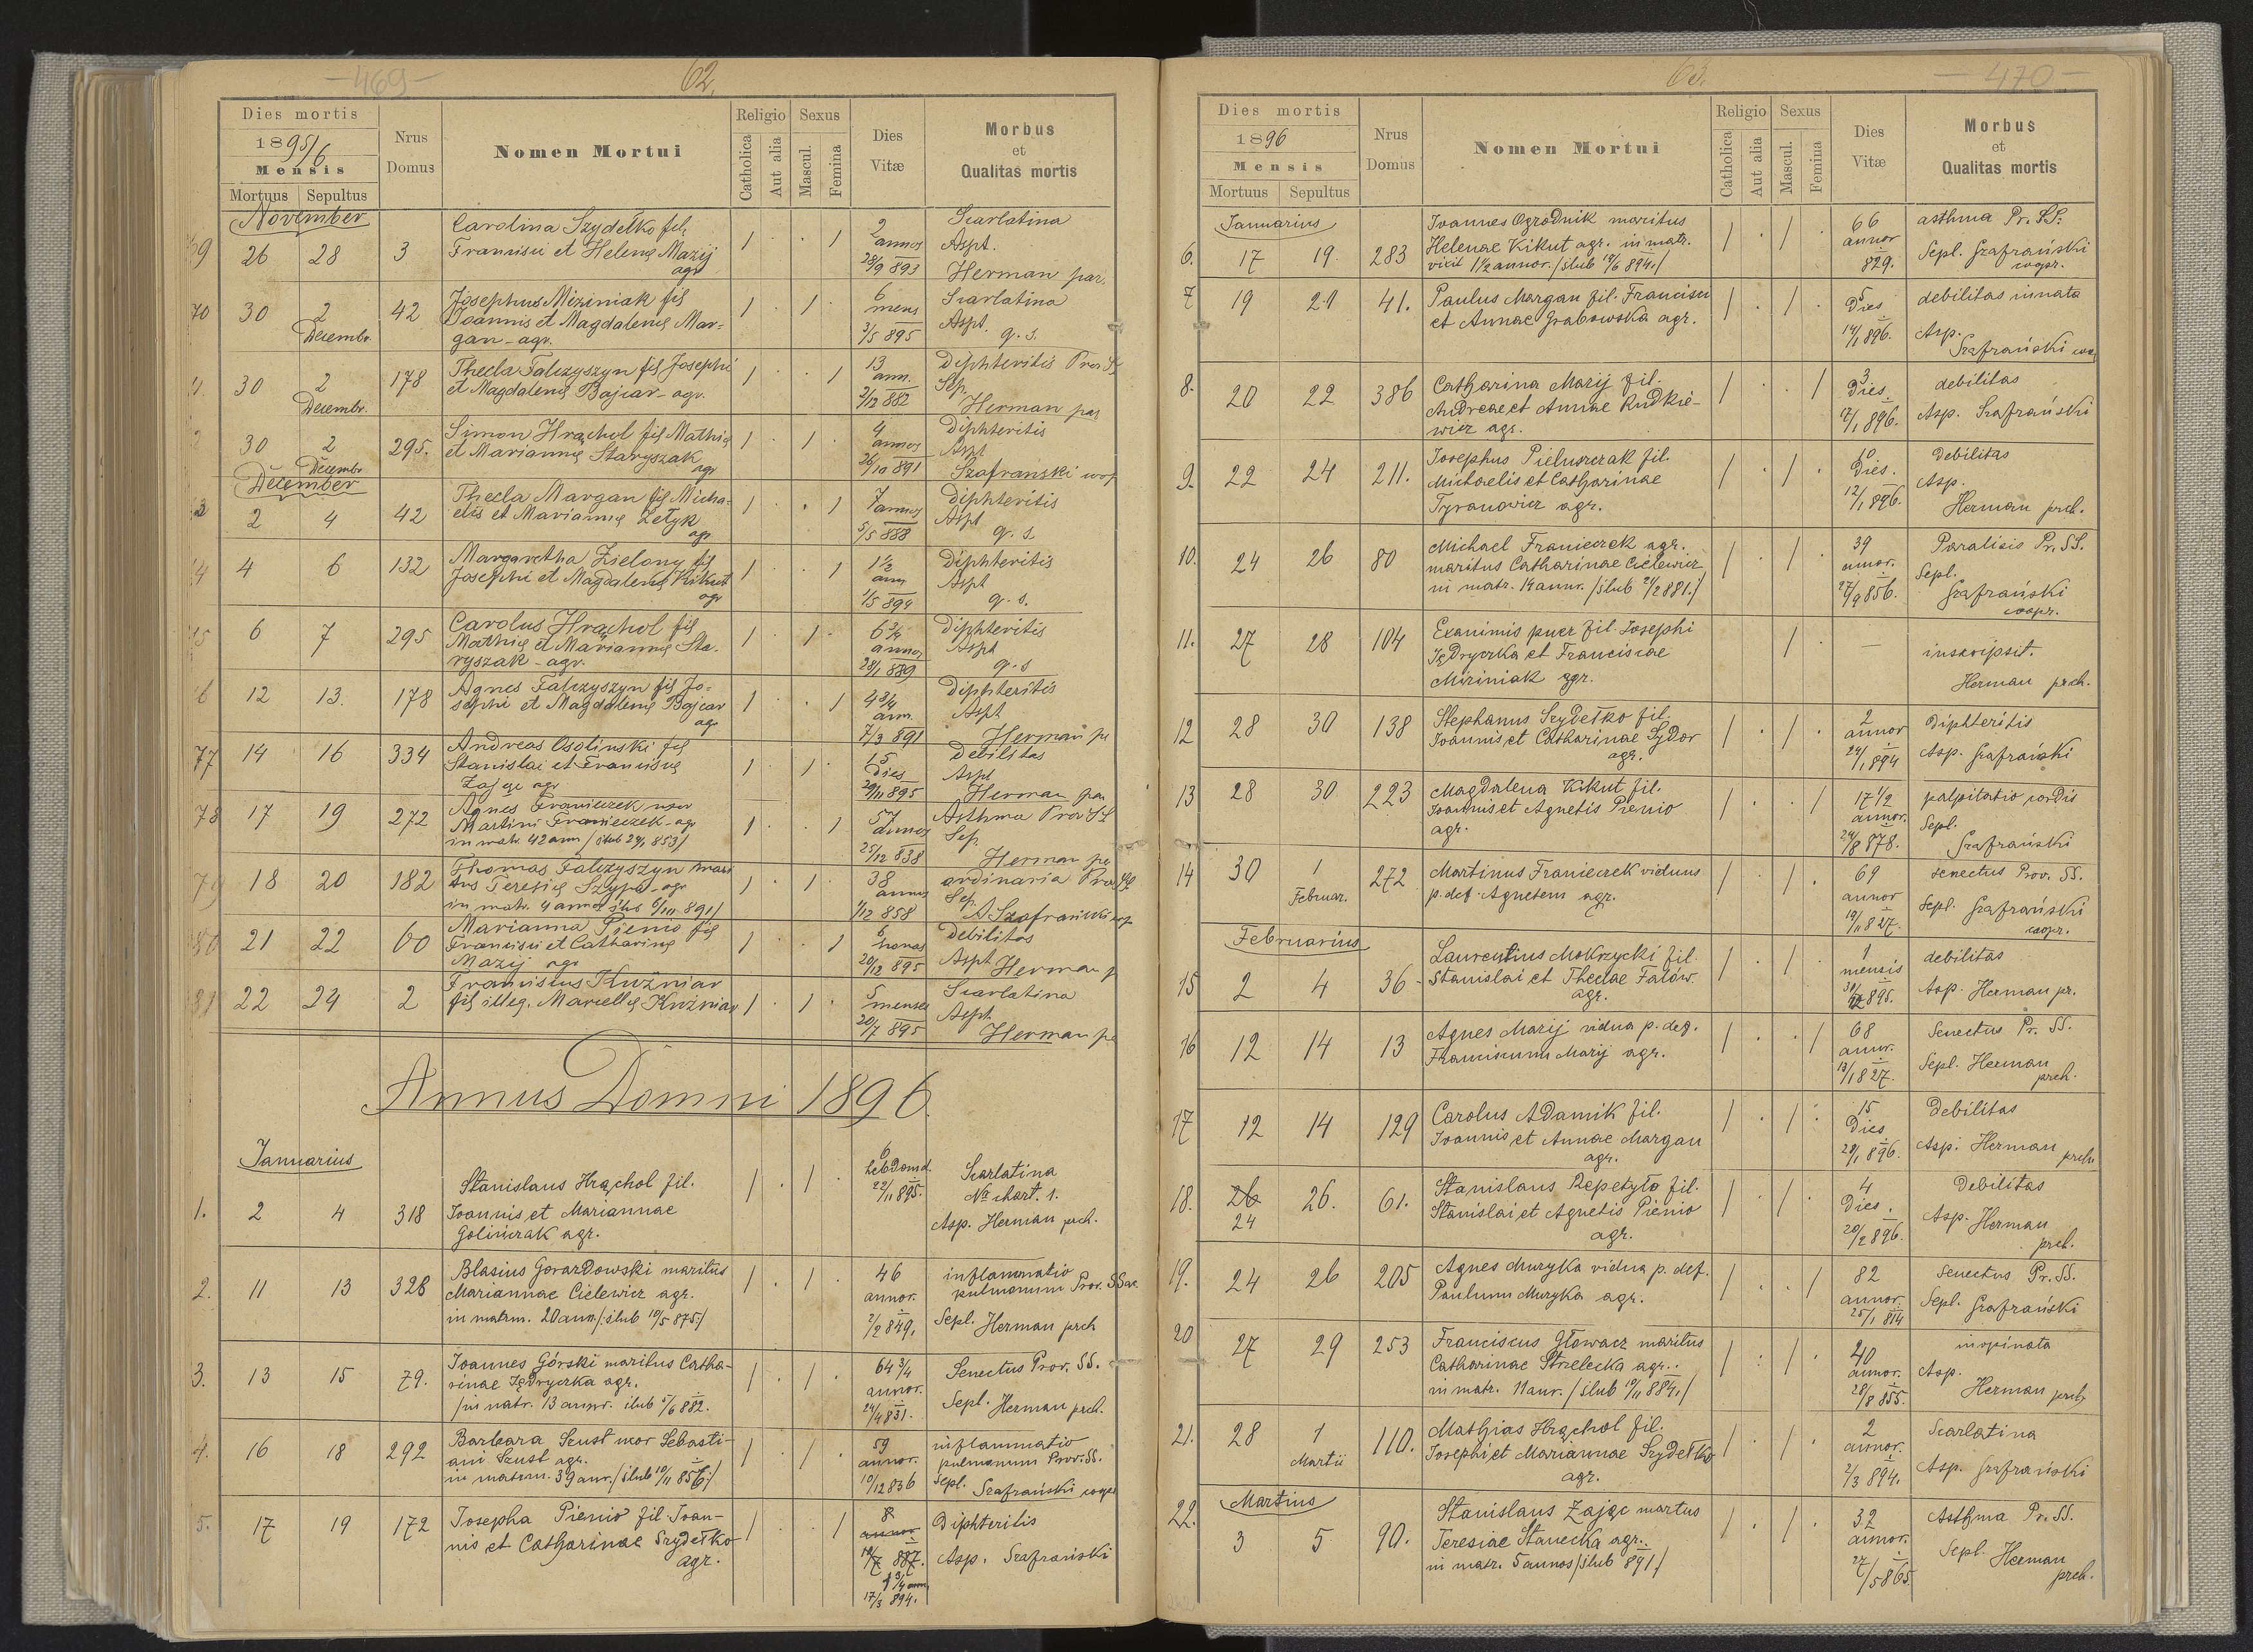 -469-
62.
Dies mortis
1895/6
Mensis
Mortuus Sepultus
Nrus Domus
Nomen Mortui
Religio
Catholica
Aut alia
Sexus
Mascul.
Femina
Dies Vitæ
Morbus
et
Qualitas mortis
November
26 28 3
Carolina Szydełko fil.
Francisci et Helenę Mazij
agr
2 annos
28/9 893
Scarlatina
Aspt.
Herman par.
70 30 2 Decembr. 42
Josephus Miziniak fil
Joannis et Magdalenę Mar-
gan - agr.
6 mens
3/5 895
Scarlatina
Aspt. q. s.
30 2 Decembr. 178
Thecla Falczyszyn fil Josephi
et Magdalenę Bajcar - agr.
13 ann.
2/12 882
Diphteritis Prov SS
Sep.
Herman par
30 2 Decembr 295.
Simon Hrąchol fil Mathię
et Mariannę Staryszak
agr
4 annos
26/10 891
Diphteritis
Aspt
Szafranski coop
December
2 4 42
Thecla Margan fil Micha-
elis et Mariannę Zetyk
agr
7 annos
5/5 888
Diphteritis
Aspt
q. s
4 6 132
Margaretha Zielony fil
Josephi et Magdalenę Kikut
agr
1 1/2 ann
1/5 894
Diphteritis
Aspt
q. s.
6 7 295
Carolus Hrąchol fil
Mathię et Mariannę Sta-
ryszak - agr.
6 3/4 annos
28/1 889
Diphteritis
Aspt
q. s
12 13. 178
Agnes Falczyszyn fil Jo-
sephi et Magdalenę Bajcar
agr
4 3/4 ann.
7/3 891
Diphteritis
Aspt
Herman pa
77 14 16 334
Andreas Osolinski fil
Stanislai et Franciscę
Zając agr
15 Dies
29/11 895
Debilitas
Aspt
Herman pa
78 17 19 272
Agnes Franieczek uxor
Martini Franieczek - agr
in matr. 42 ann / ślub 853/
57 annos
25/12 838
Asthma Prov SS
Sep.
Herman pa
79 18 20 182
Thomas Falczyszyn mari
tus Teresię Szypa - agr
in matr. 4 annos ślub 891/
38 annos
1/12 858
ordinaria Prov SS
Sep.
A Szafrański coop
80 21 22 60
Marianna Pienio fil
Francisci et Catharinę
Mazij agr
6 horas
20/12 895
Debilitas
Aspt Herman p
81 22 24 2
Franciscus Kuźniar
fil illeg. Marcellę Kuźniar
5 menses
20/7 895
Scarlatina
Aspt.
Herman pa
Annus Domini 1896.
Januarius
1. 2 4 318
Stanislaus Hrąchol fil.
Joannis et Mariannae
Golińczak agr.
6 hebdomd.
22/11 895.
Scarlatina
No chart. 1.
Asp. Herman prch.
2. 11 13 328
Blasius Gorazdowski maritus
Mariannae Cielewicz agr.
in matrm. 20 ann /: ślub 10/5 875:/
46 annor.
2/2 849.
inflammatio
pulmonum Prov. SS
Sepl. Herman prch
3. 13 15 79.
Joannes Górski maritus Catha-
rinae Jędryczka agr.
/in matr. 13 annor. ślub 5/6 882.
64 3/4 annor.
24/4 831.
Senectus Prov. SS.
Sepl. Herman prch.
4. 16 18 292
Barbara Szust uxor Sebasti-
ani Szust agr.
in matrm. 39 anr. /ślub 10/11 856/
59 annor.
10/12 836
inflammatio
pulmonum Prov. SS.
Sepl. Szafrański coopr
5. 17 19 172
Josepha Pienio fil. Joan-
nis et Catharinae Szydełko
agr.
8 annor
19/7 887.
1 3/4 ann
17/3 894.
Diphteritis
Asp. Szafrański
63.
-470-
Dies mortis
1896
Mensis
Mortuus Sepultus
Nrus Domus
Nomen Mortui
Religio
Catholica
Aut alia
Sexus
Mascul.
Femina
Dies Vitæ
Morbus
et
Qualitas mortis
Januarius
6. 17 19. 283
Joannes Ogrodnik maritus
Helenae Kikut agr. in matr.
vixit 1 1/2 annor. /ślub 19/6 894./
66 annor
829.
asthma Pr. SS.
Sepl. Szafrański
coopr.
7 19 21 41.
Paulus Margan fil. Francisci
et Annae Grabowska agr.
5 Dies
14/1 896.
debilitas innata
Asp.
Szafrański coop
8. 20 22 386
Catharina Mazij fil.
Andreae et Annae Rudkie-
wicz agr.
3 Dies.
17/1 896.
debilitas
Asp. Szafrański
9. 22 24 211.
Josephus Pieluszczak fil.
Michaelis et Catharinae
Tyranowicz agr.
10 Dies.
12/1 896.
Debilitas
Asp.
Herman prch.
10. 24 26 80
Michael Franieczek agr.
maritus Catharinae Cielewicz
in matr. 14 annr. /ślub 21/2 881./
39 annor.
27/9 856.
Paralisis Pr. SS.
Sepl.
Szafrański
coopr.
11. 27 28 104
Exanimis puer fil. Josephi
Jędryczka et Franciscae
Miziniak agr.
—
inscripsit.
Herman prch.
12 28 30 138
Stephanus Szydełko fil.
Joannis et Catharinae Sydor
agr.
2 annor
24/1 894
Diphteritis
Asp. Szafrański
13 28 30 223
Magdalena Kikut fil.
Joannis et Agnetis Pienio
agr.
17 1/2 annor.
24/8 878.
palpitatio cordis
Sepl.
Szafrański
14 30 1 Februar. 272
Martinus Franieczek viduus
p. def. Agnetem agr.
69 annor
19/11 827.
senectus Prov. SS.
Sepl. Szafrański
coopr.
Februarius
15 2 4 36
Laurentius Mokrzycki fil.
Stanislai et Theclae Fatów.
agr.
1 mensis
895.
debilitas
Asp. Herman pr.
16 12 14 13
Agnes Mazij vidua p. def.
Franciscum Mazij agr.
68 annr.
13/1 827.
Senectus Pr. SS.
Sepl. Herman
prch.
17 12 14 129
Carolus Adamik fil.
Joannis et Annae Margan
agr.
15 Dies
29/1 896.
Debilitas
Asp. Herman prch.
18. 26 24 26. 61.
Stanislaus Rzepetyło fil.
Stanislai et Agnetis Pienio
agr.
4 Dies.
20/2 896.
Debilitas
Asp. Herman
prch.
19. 24 26 205
Agnes Muzyka vidua p. def.
Paulum Muzyka agr.
82 annor.
25/1 814
Senectus Pr. SS.
Sepl. Szafrański
20 27 29 253
Franciscus Głowacz maritus
Catharinae Strzelecka agr..
in matr. 11 anr. /ślub 19/11 884./
40 annor.
28/8 855.
inopinata
Asp.
Herman prch
21. 28 1 Martii 110.
Mathias Hrąchol fil.
Josephi et Mariannae Szydełko
agr.
2 annor.
2/3 894.
Scarlatina
Asp. Szafrański
Martius
22. 3 5 90.
Stanislaus Zając martus
Teresiae Stanecka agr..
in matr. 5 annos /ślub 891./
32 annor.
27/5 865.
Asthma Pr. SS.
Sepl. Herman
prch.